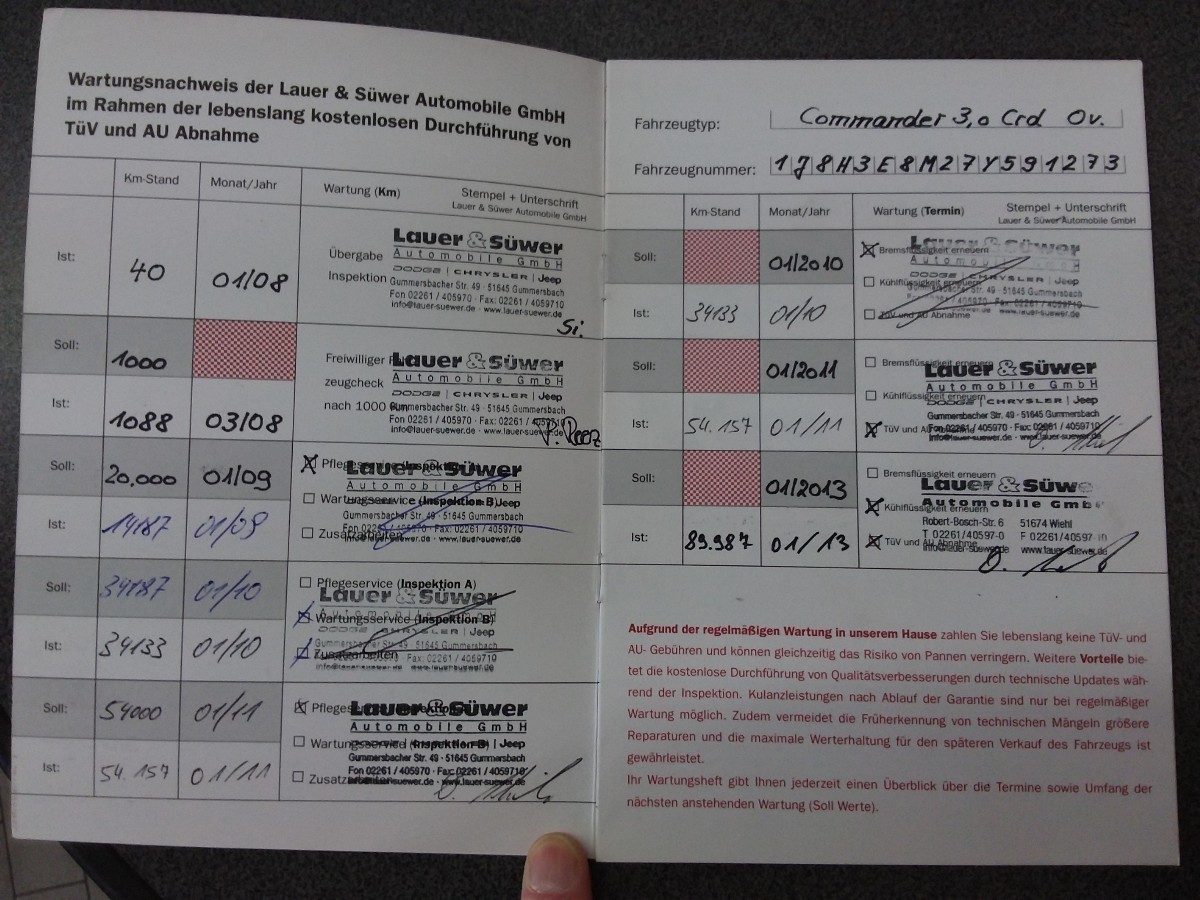 Wartungsnachweis der Lauer & Süwer Automobile GmbH
im Rahmen der lebenslang kostenlosen Durchführung von
TüV und AU Abnahme
Km-Stand Monat/Jahr Wartung (Km) Stempel + Unterschrift
Lauer & Süwer Automobile GmbH
Ist: 40 01/08 Übergabe
Inspektion
Lauer & Süwer
Automobile GmbH
DODGE | CHRYSLER | Jeep
Gummersbacher Str. 49 · 51645 Gummersbach
Fon 02261 / 405970 · Fax: 02261 / 4059710
info@lauer-suewer.de · www.lauer-suewer.de
Si.
Soll: 1000 Freiwilliger
zeugcheck
nach 1000
Ist: 1088 03/08
Lauer & Süwer
Automobile GmbH
DODGE | CHRYSLER | Jeep
Gummersbacher Str. 49 · 51645 Gummersbach
Fon 02261 / 405970 · Fax: 02261 / 4059710
info@lauer-suewer.de · www.lauer-suewer.de
Soll: 20,000 01/09 Pflegeservice (Inspektion A)
Wartungsservice (Inspektion B)
Ist: 14187 01/09 Zusatzarbeiten
Lauer & Süwer
Automobile GmbH
Jeep
Gummersbacher Str. 49 · 51645 Gummersbach
Fon 02261 / 405970 · Fax: 02261 / 4059710
info@lauer-suewer.de · www.lauer-suewer.de
Soll: 34187 01/10 Pflegeservice (Inspektion A)
Wartungsservice (Inspektion B)
Ist: 34133 01/10 Zusatzarbeiten
Lauer & Süwer
Automobile GmbH
DODGE | CHRYSLER | Jeep
Gummersbacher Str. 49 51645 Gummersbach
Fax: 02261 / 4059710
Soll: 54000 01/11 Pflegeservice
Wartungsservice (Inspektion B)
Ist: 54.157 01/11 Zusatzarbeiten
Lauer & Süwer
Automobile GmbH
Jeep
Gummersbacher Str. 49 · 51645 Gummersbach
Fon 02261 / 405970 · Fax: 02261 / 4059710
www.lauer-suewer.de
Fahrzeugtyp: Commander 3,0 Crd Ov.
Fahrzeugnummer: 1J8H3E8M27Y591273
Km-Stand Monat/Jahr Wartung (Termin) Stempel + Unterschrift
Lauer & Süwer Automobile GmbH
Soll: 01/2010 Bremsflüssigkeit erneuern
Kühlflüssigkeit erneuern
Ist: 34133 01/10 TüV und AU Abnahme
Lauer & Süwer
Automobile GmbH
DODGE | CHRYSLER | Jeep
Gummersbacher Str. 49 · 51645 Gummersbach
Soll: 01/2011 Bremsflüssigkeit erneuern
Kühlflüssigkeit erneuern
Ist: 54.157 01/11 TüV und AU Abnahme
Lauer & Süwer
Automobile GmbH
DODGE | CHRYSLER | Jeep
Gummersbacher Str. 49 · 51645 Gummersbach
Fon 02261 / 405970 · Fax: 02261 / 4059710
info@lauer-suewer.de · www.lauer-suewer.de
Soll: 01/2013 Bremsflüssigkeit erneuern
Kühlflüssigkeit erneuern
Ist: 89.987 01/13 TüV und AU Abnahme
Lauer & Süwe
Automobile Gmb
Robert-Bosch-Str. 6 51674 Wiehl
T 02261 / 40597-0 F 02261 / 40597
info@lauer-suewer.de www.lauer-suewer.de
Aufgrund der regelmäßigen Wartung in unserem Hause zahlen Sie lebenslang keine TüV- und
AU- Gebühren und können gleichzeitig das Risiko von Pannen verringern. Weitere Vorteile bie-
tet die kostenlose Durchführung von Qualitätsverbesserungen durch technische Updates wäh-
rend der Inspektion. Kulanzleistungen nach Ablauf der Garantie sind nur bei regelmäßiger
Wartung möglich. Zudem vermeidet die Früherkennung von technischen Mängeln größere
Reparaturen und die maximale Werterhaltung für den späteren Verkauf des Fahrzeugs ist
gewährleistet.
Ihr Wartungsheft gibt Ihnen jederzeit einen Überblick über die Termine sowie Umfang der
nächsten anstehenden Wartung (Soll Werte).